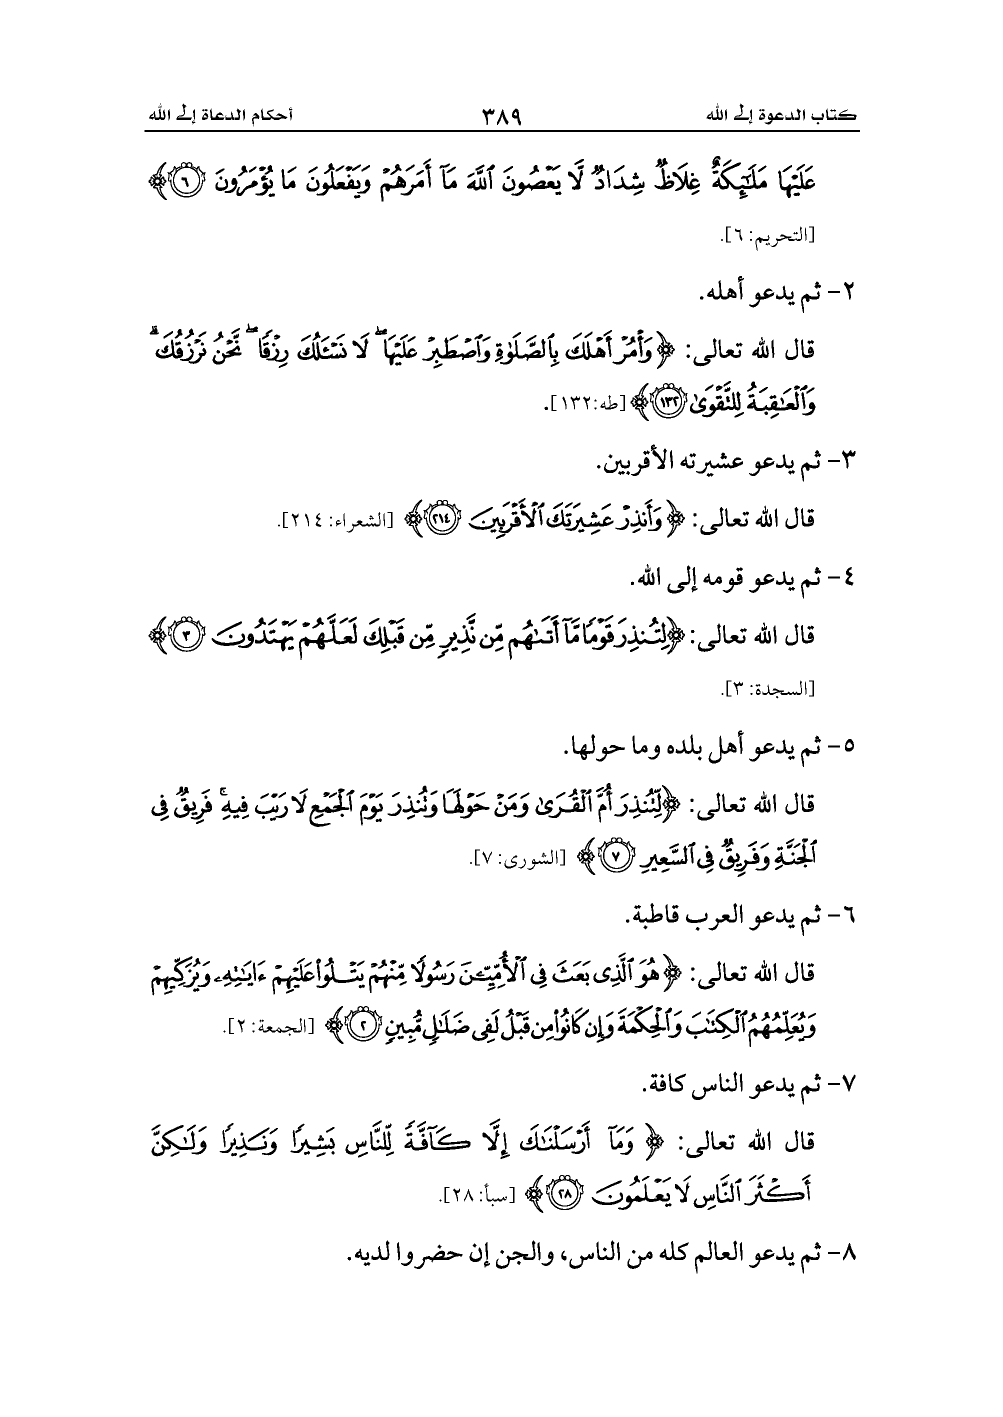 كتاب الدعوة إلى الله ٣٨٩ أحكام الدعاة إلى الله
عَلَيْهَا مَلَٰٓئِكَةٌ غِلَاظٌ شِدَادٌ لَّا يَعْصُونَ ٱللَّهَ مَآ أَمَرَهُمْ وَيَفْعَلُونَ مَا يُؤْمَرُونَ ٦﴾
[التحريم: ٦].
٢- ثم يدعو أهله.
قال الله تعالى: ﴿وَأْمُرْ أَهْلَكَ بِٱلصَّلَوٰةِ وَٱصْطَبِرْ عَلَيْهَا ۖ لَا نَسْـَٔلُكَ رِزْقًا ۖ نَّحْنُ نَرْزُقُكَ ۗ
وَٱلْعَٰقِبَةُ لِلتَّقْوَىٰ ١٣٢﴾ [طه: ١٣٢].
٣- ثم يدعو عشيرته الأقربين.
قال الله تعالى: ﴿وَأَنذِرْ عَشِيرَتَكَ ٱلْأَقْرَبِينَ ٢١٤﴾ [الشعراء: ٢١٤].
٤- ثم يدعو قومه إلى الله.
قال الله تعالى: ﴿لِتُنذِرَ قَوْمًا مَّآ أَتَىٰهُم مِّن نَّذِيرٍ مِّن قَبْلِكَ لَعَلَّهُمْ يَهْتَدُونَ ٣﴾
[السجدة: ٣].
٥- ثم يدعو أهل بلده وما حولها.
قال الله تعالى: ﴿لِّتُنذِرَ أُمَّ ٱلْقُرَىٰ وَمَنْ حَوْلَهَا وَتُنذِرَ يَوْمَ ٱلْجَمْعِ لَا رَيْبَ فِيهِ ۚ فَرِيقٌ فِى
ٱلْجَنَّةِ وَفَرِيقٌ فِى ٱلسَّعِيرِ ٧﴾ [الشورى: ٧].
٦- ثم يدعو العرب قاطبة.
قال الله تعالى: ﴿هُوَ ٱلَّذِى بَعَثَ فِى ٱلْأُمِّيِّـۧنَ رَسُولًا مِّنْهُمْ يَتْلُوا۟ عَلَيْهِمْ ءَايَٰتِهِۦ وَيُزَكِّيهِمْ
وَيُعَلِّمُهُمُ ٱلْكِتَٰبَ وَٱلْحِكْمَةَ وَإِن كَانُوا۟ مِن قَبْلُ لَفِى ضَلَٰلٍ مُّبِينٍ ٢﴾ [الجمعة: ٢].
٧- ثم يدعو الناس كافة.
قال الله تعالى: ﴿وَمَآ أَرْسَلْنَٰكَ إِلَّا كَآفَّةً لِّلنَّاسِ بَشِيرًا وَنَذِيرًا وَلَٰكِنَّ
أَكْثَرَ ٱلنَّاسِ لَا يَعْلَمُونَ ٢٨﴾ [سبأ: ٢٨].
٨- ثم يدعو العالم كله من الناس، والجن إن حضروا لديه.